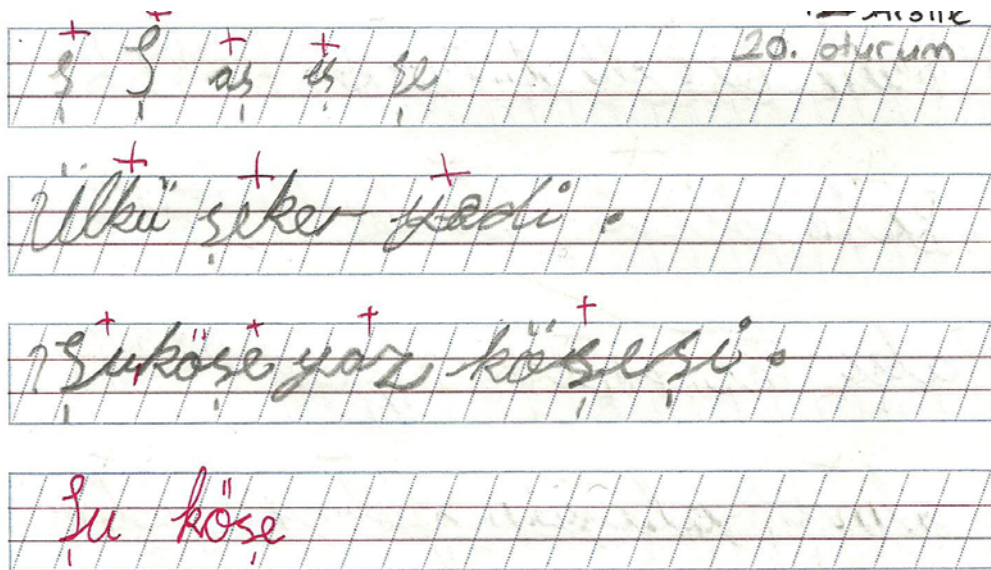 Aralık
20. oturum
ş Ş aş eş şe
Ülkü şeker yadi.
Şuköşe yaz köşeşi.
Şu köşe